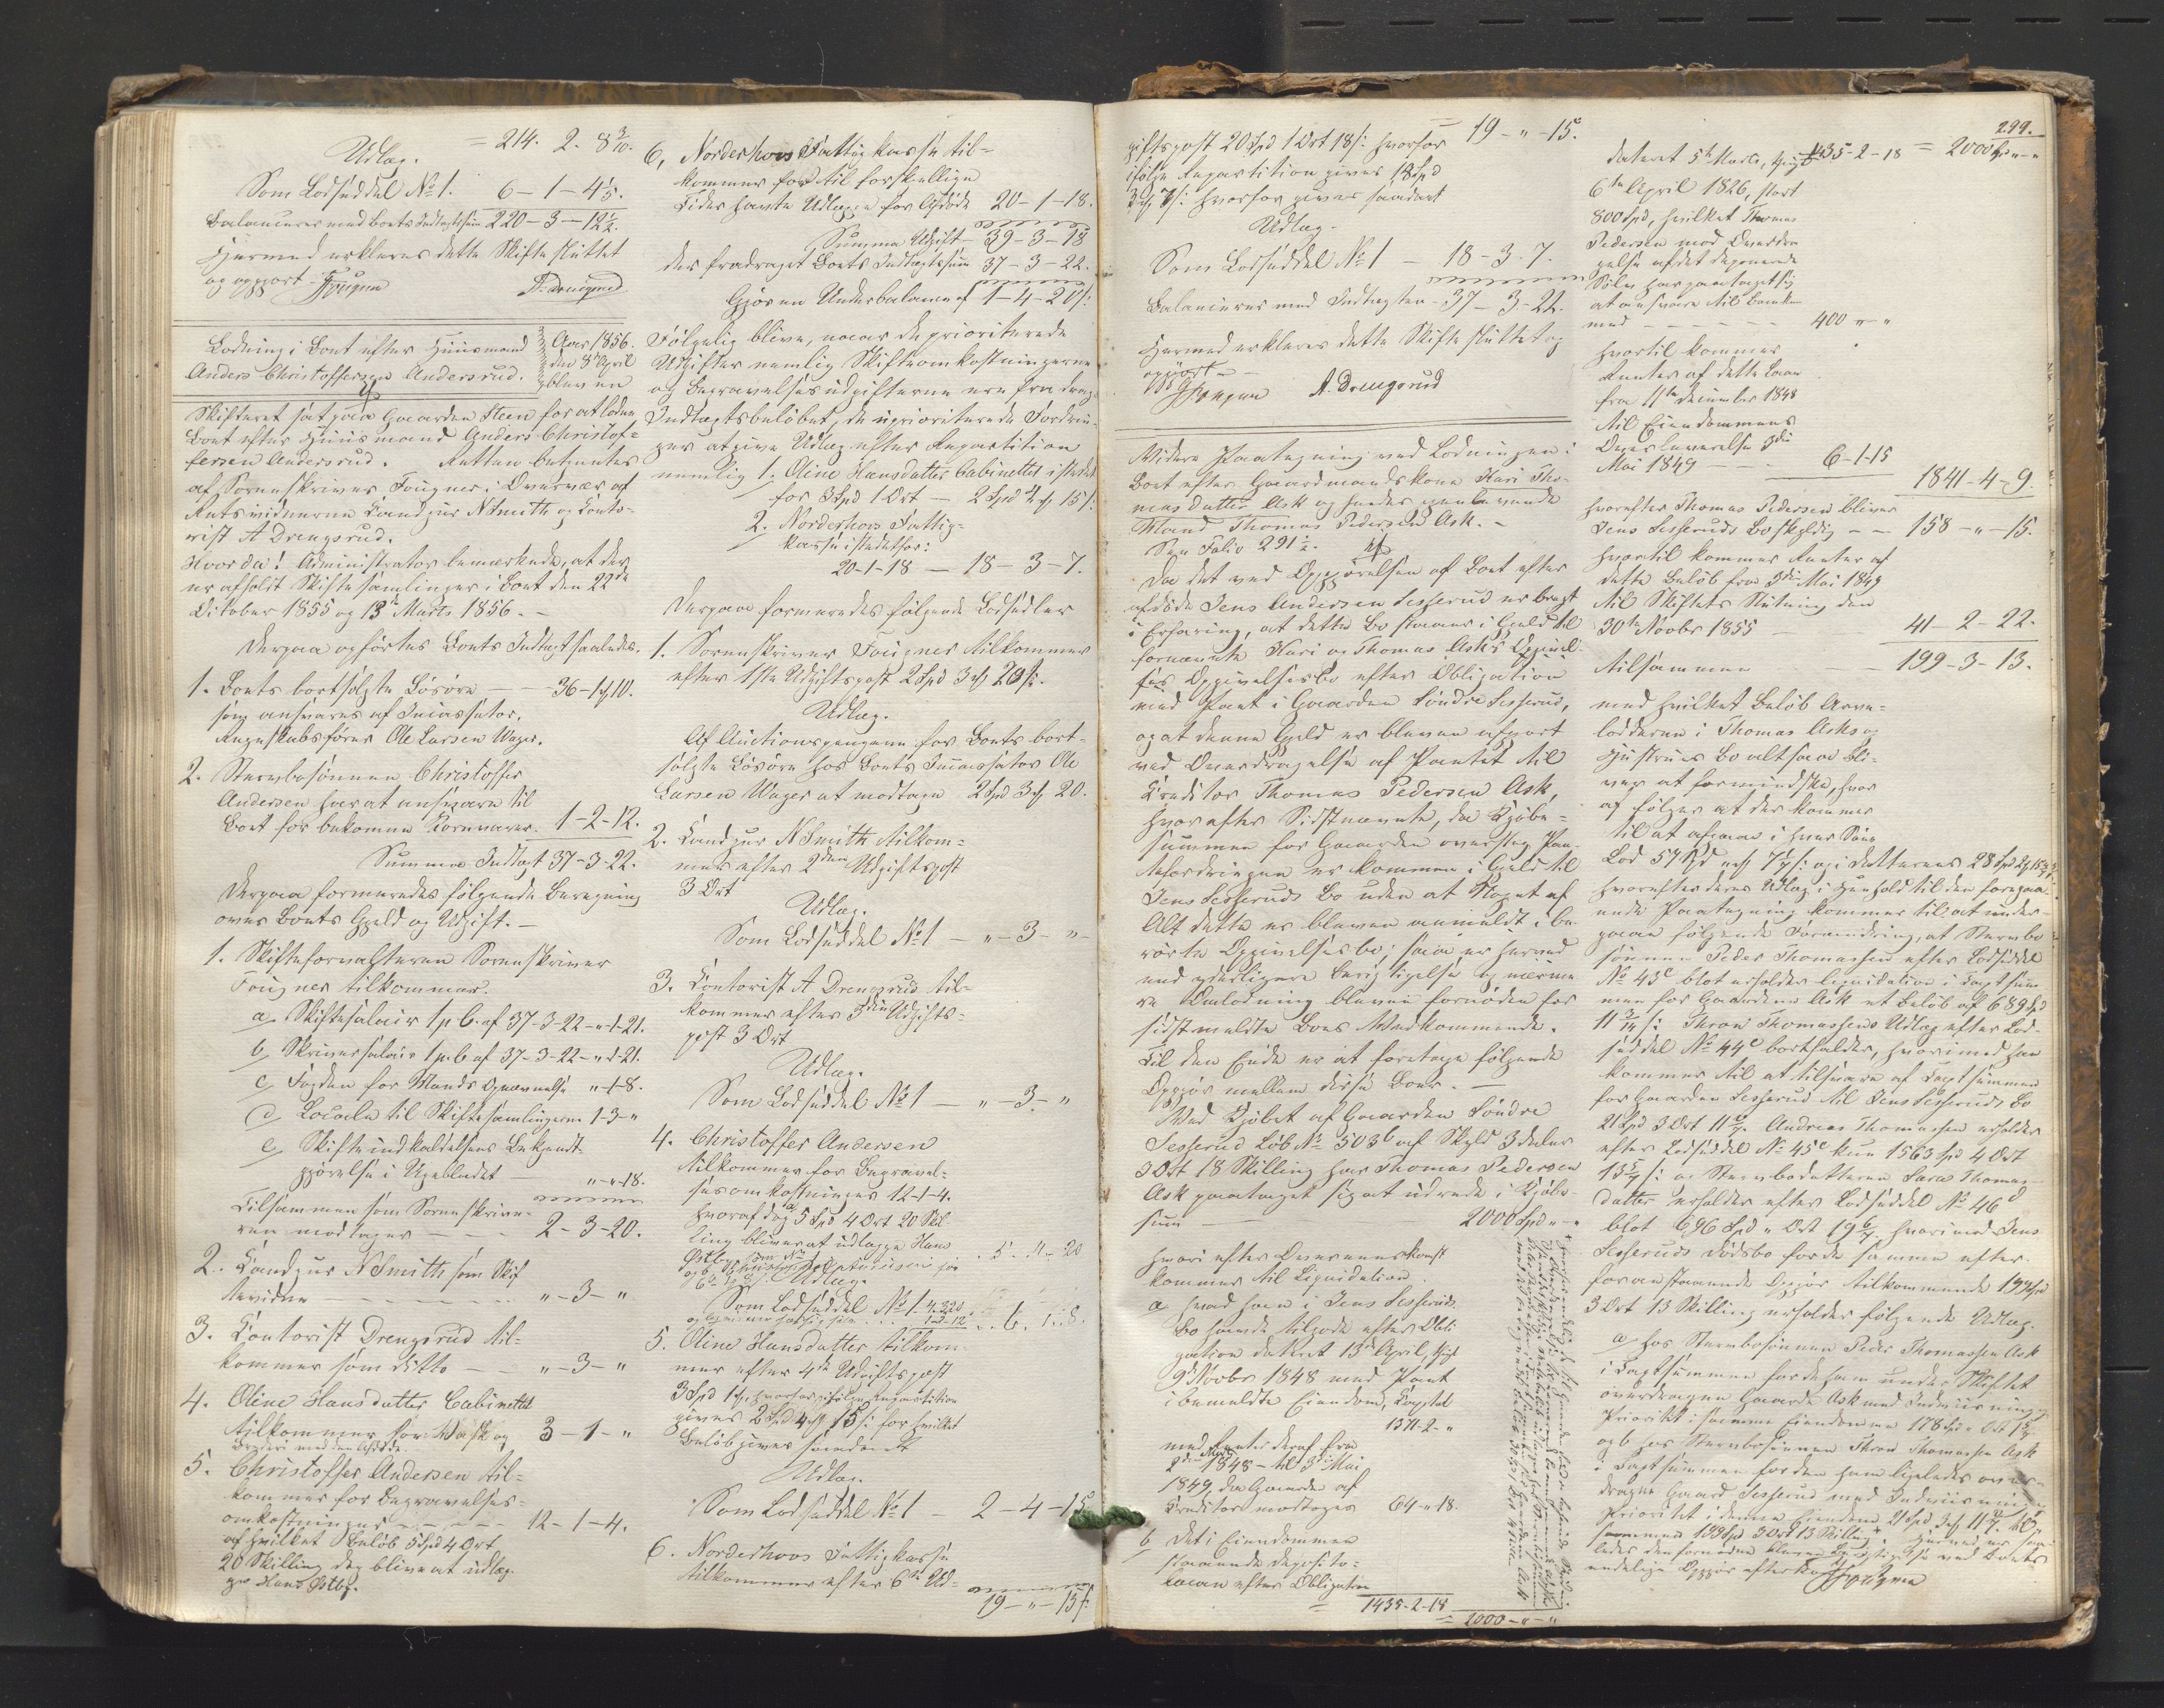 = 214. 2. 8 3/10.
Udlæg.
Som Lodseddel No 1. 6 - 1 - 4 1/5.
Balancerer med Boets Indtægtssum 220 - 3 - 12 1/2.
Hermed erklæres dette Skifte sluttet
og opgjort. Fougner
Lodning i Boet efter Huusmand
Anders Christoffersen Andersrud.
Aar 1856.
den 8de April
blev en
Skifteret sat paa Gaarden Steen for at lodne
Boet efter Huusmand Anders Christof-
fersen Andersrud. Retten betjentes
af Sorenskriver Fougner i Overvær af
Retsvidnerne Landhør N Smith og Conto-
rist A Drengsrud.
Hvor da! Administrator bemærkede, at der
er afholdt Skiftesamlinger i Boet den 22de
October 1855 og 13de Marts 1856. -
Derpaa opførtes Boets Indtægt saaledes.
1. Boets bortsolgte Løsøre - - 36 - 1 - 10.
som ansvares af Incassator,
Regnskabsfører Ole Larsen Wager.
2. Stervbosønnen Christoffer
Andersen har at ansvare til
Boet for bekomne Kornvarer. 1 - 2 - 12.
Summa Indtægt 37 - 3 - 22.
Derpaa formeredes følgende Beregning
over Boets Gjeld og Udgift. -
1. Skifteforvalteren Sorenskriver
Fougner tilkommer.
a, Skiftesalair 1 p C. af 37-3-22 - " -1-21.
b, Skriversalair 1 p C af 37-3-22 - " -1-21.
c, Fogden for Mands Opnævnelse " -1-8.
d, Locale til Skiftesamlingerne 1-3-"
e, Skifteindkaldelsens Bekjendt-
gjørelse i Ugebladet - " - " -18.
Tilsammen som Sorenskrive-
ren modtager - - - 2 - 3 - 20.
2. N Smith som Skif-
tevidne - - - " - 3 - "
3. Contorist Drengsrud til-
kommer som ditto - " - 3 - "
4. Oline Hansdatter Cabinettet
tilkommer for Vask og 3 - 1 - "
5. Christoffer Andersen til-
kommer for Begravelses-
omkostninger - - - 12 - 1 - 4.
af hvilket Beløb 5 Spd 4 Ort
20 Skilling dog bliver at udlæg-
ges Hans Østby.
6, Norderhovs Fattigkasse til-
kommer for til forskjellige
Tider havte Udlæg for Afdøde 20 - 1 - 18.
Summa Udgift - 39 - 3 - 18
der fradraget Boets Indtægtssum 37 - 3 - 22.
Gjør en Underbalance af 1 - 4 - 20 s:
Følgelig blive, naar de prioriterede
Udgifter nemlig Skifteomkostningerne
og Begravelsesudgifterne ere fra drag.
Indtægtsbeløbet, de uprioriterede Fordrin-
ger at give Udlæg efter Repartition
nemlig 1. Oline Hansdatter Cabinettet istedet
for 3 Spd 1 Ort - 2 Spd 4 15 s:
2. Norderhovs Fattig-
kasse istedetfor:
20-1-18 - 18 - 3 - 7.
Derpaa formeredes følgende Lodsedler
1. Sorenskriver Fougner tilkommer
efter 1ste Udgiftspost 2 Spd 3 20 s:
Udlæg.
Af Auctionspengene for Boets bort-
solgte Løsøre hos Boets Incassator Ole
Larsen Wager at modtage 2 Spd 3 20.
2. N Smith tilkom-
mer efter 2den Udgiftspost
3 Ort
Udlæg.
Som Lodseddel No 1 - " - 3 - "
3. Contorist A Drengsrud til-
kommer efter 3die Udgifts-
post 3 Ort
Udlæg.
Som Lodseddel No 1 - " - 3 - "
4. Christoffer Andersen
tilkommer for Begravel-
sesomkostninger 12-1-4.
hvoraf dog 5 Spd 4 Ort 20 Skil-
ling bliver at udlægge Hans
Østby 5 - 4 - 20
Udlæg.
Som Lodseddel No 1
6. 1. 8.
5. Oline Hansdatter tilkom-
mer efter 4de Udgiftspost
3 Spd 1, hvorfor ifølge Repartition
gives 2 Spd 4 15 s: for hvilket
Beløb gives saadant
Udlæg.
Som Lodseddel No 1 - 2 - 4 - 15
6. Norderhovs Fattigkasse
tilkommer efter 6te Ud-
19 - " - 15 s:
= 19 - " - 15.
giftspost 20 Spd 1 Ort 18 s: hvorfor
ifølge Repartition gives 18 Spd
3 7 s: hvorfor gives saadant
Udlæg.
Som Lodseddel No 1 - 18 - 3 - 7.
Balancerer med Indtægten - 37 - 3 - 22.
Hermed erklæres dette Skifte sluttet og
opgjort. -
Fougner A. Drengsrud
Videre Paategning ved Lodningen i
Boet efter Gaardmandskone Kari Tho-
mas datter Ask og hendes gjenlevende
Mand Thomas Pedersen Ask. -
See Folio 291 1/2.
Da det ved Opgjørelsen af Boet efter
afdøde Jens Andersen Sesserud er bragt
i Erfaring, at dette Bo staaer i Gjeld til
fornævnte Kari og Thomas Ask's
Opgivelsesbo efter Obligation
med Pant i Gaarden Søndre Sesserud,
og at denne Gjeld er bleven afgjort
ved Overdragelse af Pantet til
Creditor Thomas Pedersen Ask,
hvorefter Sidstnævnte, da Kjøbe-
summen for Gaarden oversteg Pan-
tefordringen er kommen i Gjeld til
Jens Sesseruds Bo uden at Noget af
Alt dette er bleven anmeldt i be-
rørte Opgivelsesbo; saa er herved
end yderligere Berigtigelse og nærme-
re Omlodning bleven fornøden for
sidstmeldte Boes Vedkommende.
Til den Ende er at foretage følgende
Opgjør mellem disse Boer. -
Ved Kjøbet af Gaarden Søndre
Sesserud Løb No 503b af Skyld 3 daler
3 Ort 18 Skilling har Thomas Pedersen
Ask paataget sig at udrede i Kjøbe-
sum - - 2000 Spd " - "
hvori efter Overeenskomst
kommer til Liquidation.
a, hvad han i Jens Sesseruds
Bo havde tilgode efter Obli-
gation dateret 13de April,
9de Novbr 1848 med Pant
i bemeldte Eiendom, Capital
1371-2-"
med Renter deraf fra
1848 - til 3die Mai
1849, da Gaarden af
Creditor modtoges 64 - " 18.
b, Det i Eiendommen
staaende Deposito-
laan efter Obligation
= 1435-2-18 = 2000 - " - "
299.
dateret 5te Marts, 1435-2-18 = 2000 Spd " - "
6te April 1826, stort
800 Spd, hvilket Thomas
Pedersen mod Overdra-
gelse af det deponerede
Sølv har paataget sig
at ansvare til Banken
med - - - 400 " - "
hvortil kommer
Renter af dette Laan
fra 11te December 1848
til Eiendommens
Overleverelse 3die
Mai 1849 - - - 6-1-15
1841-4-9.
hvorefter Thomas Pedersen bliver
Jens Sesseruds Bo skyldig - - 158 - " - 15.
hvortil kommer Renter af
dette Beløb fra 3die Mai 1849
til Skiftets Slutning den
30te Novbr 1855 - 41 - 2 - 22.
tilsammen - - 199 - 3 - 13.
med hvilket Beløb Arve-
lodderne i Thomas Asks og
Hustrues Bo altsaa bli-
ver at formindske, hvor-
af følger at der kommer
til at afgaae i hver Søns
Lod 57 Spd " 7 1/7 s: og i Datterens 28 Spd
hvorefter deres Udlæg i Henhold til den foregaa-
ende Paategning kommer til at under-
gaae følgende Forandring, at Stervbo-
sønnen Peder Thomassen efter Lodseddel
No 43c blot erholder liquidation i Kjøbesum-
men for Gaardene Ask et Beløb af 689 Spd
11 3/14 s: Thron Thomassens Udlæg efter Lod-
seddel No 44c bortfalder, hvorimod han
kommer til at tilsvare af Kjøbesummen
for Gaarden Sesserud til Jens Sesseruds Bo
21 Spd 3 Ort 11 s: Andreas Thomassen erholder
efter Lodseddel No 45c kun 1563 Spd 4 Ort
13 s: og Stervbodatteren Sara Thomas-
datter erholder efter Lodseddel No 46d
blot 696 Spd " Ort 19 s: hvorimod Jens
Sesseruds Dødsbo for de samme efter
foranstaaende Opgjør tilkommende 199 Spd
3 Ort 13 Skilling erholder følgende Udlæg.
a, hos Stervbosønnen Peder Thomassen Ask
i Kjøbesummen for de ham under Skiftet
overdragne Gaarde Ask med Indviisning
Prioritet i samme Eiendomme 178 Spd
og b, hos Stervbosønnen Thron Thomassen Ask
i Kjøbesummen for den ham ligeledes over-
dragne Gaard Sesserud med Indviisning
Prioritet i denne Eiendom 21 Spd 3 11
sammen 199 Spd 3 Ort 13 Skilling. Hermed er saa-
ledes den fornødne bleven Berigtigelse ved Boets
endelige Opgjør
Fougner